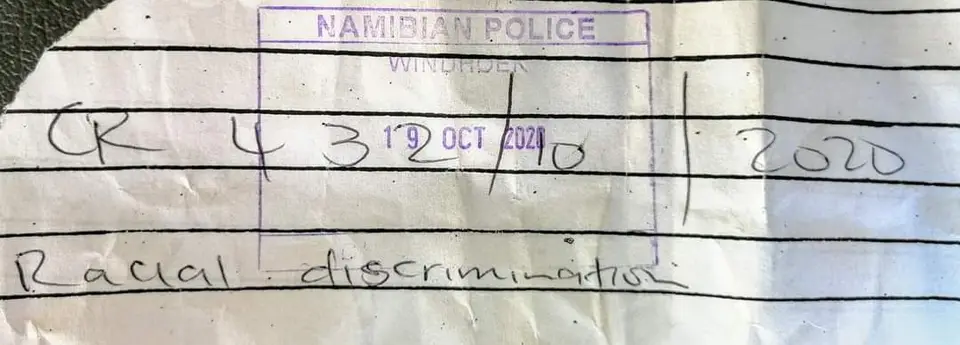 NAMIBIAN POLICE
WINDHOEK
19 OCT 2020
CR 432/10/2020
Racial discrimination